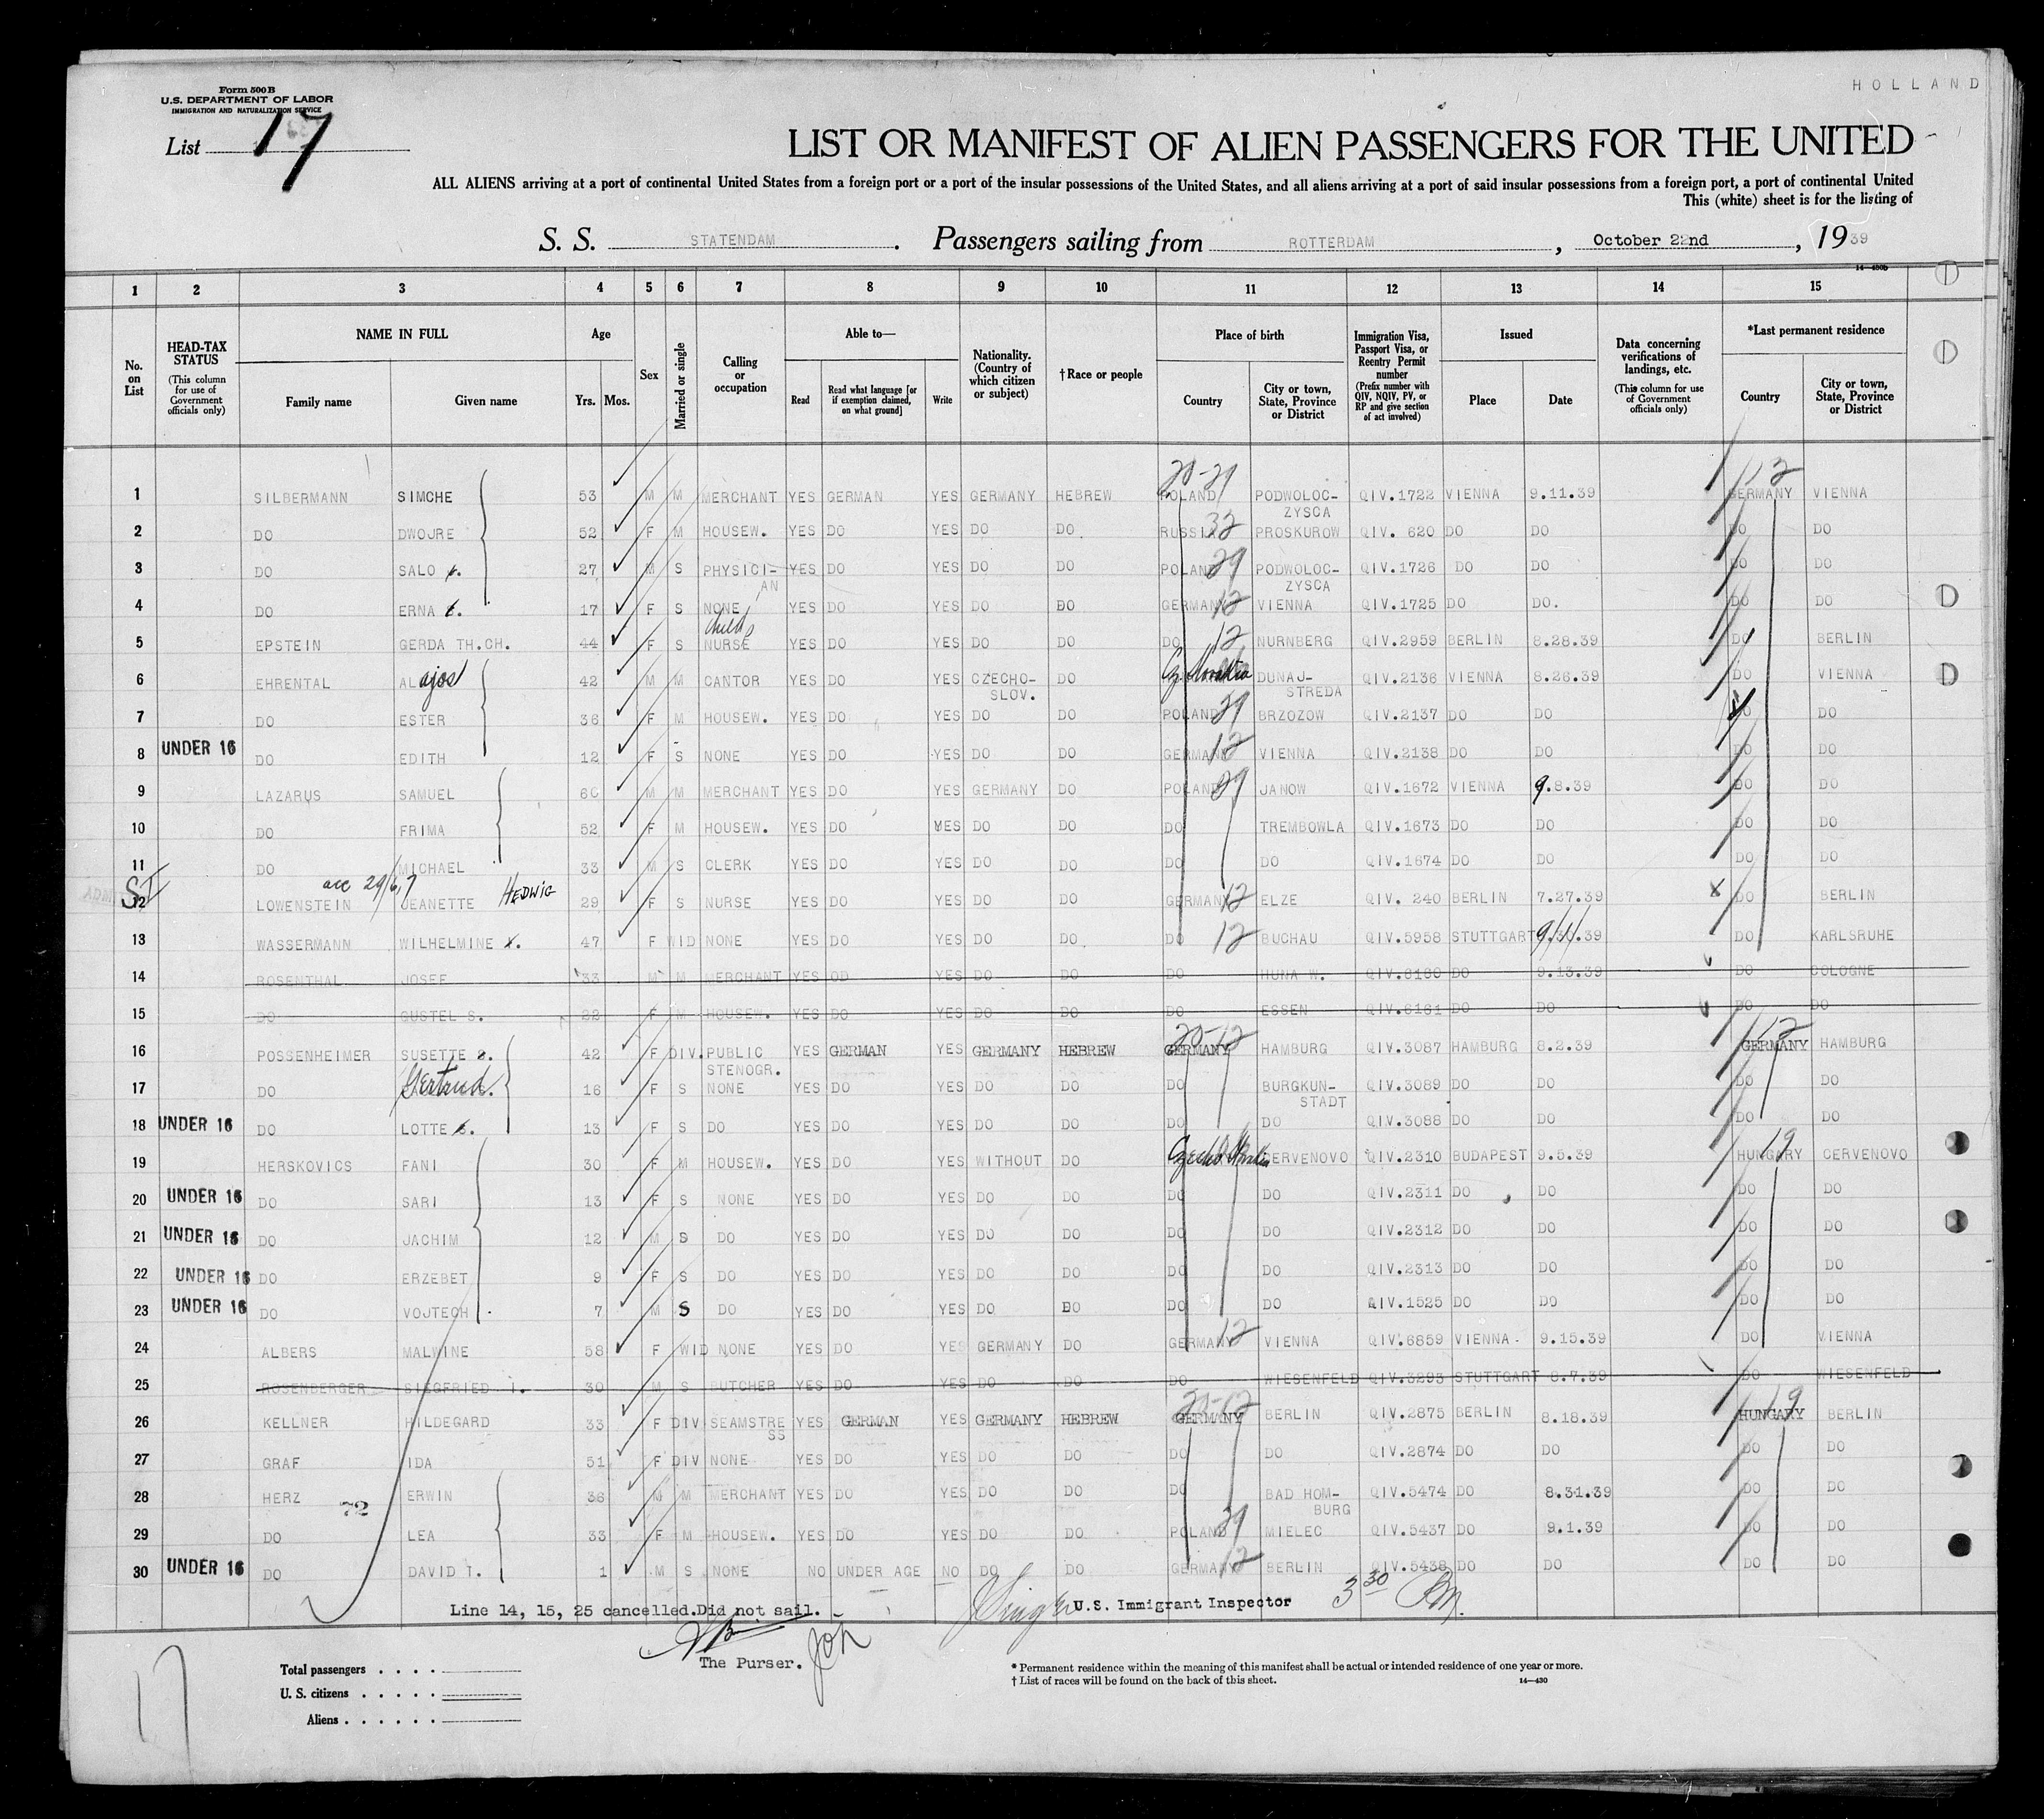 HOLLAND
Form 500 B
U.S. DEPARTMENT OF LABOR
IMMIGRATION AND NATURALIZATION SERVICE
List 17
LIST OR MANIFEST OF ALIEN PASSENGERS FOR THE UNITED
ALL ALIENS arriving at a port of continental United States from a foreign port or a port of the insular possessions of the United States, and all aliens arriving at a port of said insular possessions from a foreign port, a port of continental United
This (white) sheet is for the listing of
S. S. STATENDAM. Passengers sailing from ROTTERDAM, October 22nd, 1939
14—480b
1 2 3 4 5 6 7 8 9 10 11 12 13 14 15
No. on List
HEAD-TAX STATUS (This column for use of Government officials only)
NAME IN FULL Family name Given name
Age Yrs. Mos.
Sex
Married or single
Calling or occupation
Able to— Read Read what language [or if exemption claimed, on what ground] Write
Nationality. (Country of which citizen or subject)
†Race or people
Place of birth Country City or town, State, Province or District
Immigration Visa, Passport Visa, or Reentry Permit number (Prefix number with QIV, NQIV, PV, or RP and give section of act involved)
Issued Place Date
Data concerning verifications of landings, etc. (This column for use of Government officials only)
*Last permanent residence Country City or town, State, Province or District
1 SILBERMANN SIMCHE 53 M M MERCHANT YES GERMAN YES GERMANY HEBREW POLAND PODWOLOC-ZYSCA QIV.1722 VIENNA 9.11.39 GERMANY VIENNA
2 DO DWOJRE 52 F M HOUSEW. YES DO YES DO DO. RUSSIA 32 PROSKUROW QIV. 620 DO DO DO DO
3 DO SALO 27 M S PHYSICI-AN YES DO YES DO DO POLAND 29 PODWOLOC-ZYSCA QIV.1726 DO DO DO DO
4 DO ERNA 17 F S NONE YES DO YES DO DO GERMANY 12 VIENNA QIV.1725 DO DO. DO DO
5 EPSTEIN GERDA TH.CH. 44 F S Child's NURSE YES DO YES DO DO DO 12 NURNBERG QIV.2959 BERLIN 8.28.39 DO BERLIN
6 EHRENTAL ALajos 42 M M CANTOR YES DO YES CZECHO-SLOV. DO DUNAJ-STREDA QIV.2136 VIENNA 8.26.39 DO VIENNA
7 DO ESTER 36 F M HOUSEW. YES DO YES DO DO POLAND 29 BRZOZOW QIV.2137 DO DO DO DO
8 UNDER 16 DO EDITH 12 F S NONE YES DO YES DO DO GERMANY 12 VIENNA QIV.2138 DO DO DO DO
9 LAZARUS SAMUEL 60 M M MERCHANT YES DO YES GERMANY DO POLAND 29 JANOW QIV.1672 VIENNA 9.8.39 DO DO
10 DO FRIMA 52 F M HOUSEW. YES DO YES DO DO DO TREMBOWLA QIV.1673 DO DO DO DO
11 DO MICHAEL 33 M S CLERK YES DO YES DO DO DO DO QIV.1674 DO DO DO DO
SI 12 LOWENSTEIN JEANETTE HEDWIG 29 F S NURSE YES DO YES DO DO GERMANY 12 ELZE QIV. 240 BERLIN 7.27.39 DO BERLIN
13 WASSERMANN WILHELMINE 47 F WID NONE YES DO YES DO DO DO 12 BUCHAU QIV.5958 STUTTGART 9/11.39 DO KARLSRUHE
14 ROSENTHAL JOSEF 33 M M MERCHANT YES OD YES DO DO DO HUNA W. QIV.6180 DO 9.13.39 DO COLOGNE
15 DO GUSTEL S. 22 F M HOUSEW. YES DO YES DO DO DO ESSEN QIV.6181 DO DO DO DO
16 POSSENHEIMER SUSETTE 42 F DIV. PUBLIC STENOGR. YES GERMAN YES GERMANY HEBREW GERMANY HAMBURG QIV.3087 HAMBURG 8.2.39 GERMANY HAMBURG
17 DO Gertrud. 16 F S NONE YES DO YES DO DO DO BURGKUN-STADT QIV.3089 DO DO DO DO
18 UNDER 16 DO LOTTE 13 F S DO YES DO YES DO DO DO DO QIV.3088 DO DO DO DO
19 HERSKOVICS FANI 30 F M HOUSEW. YES DO YES WITHOUT DO CERVENOVO QIV.2310 BUDAPEST 9.5.39 HUNGARY 19 CERVENOVO
20 UNDER 16 DO SARI 13 F S NONE YES DO YES DO DO DO DO QIV.2311 DO DO DO DO
21 UNDER 16 DO JACHIM 12 M S DO YES DO YES DO DO DO DO QIV.2312 DO DO DO DO
22 UNDER 16 DO ERZEBET 9 F S DO YES DO YES DO DO DO DO QIV.2313 DO DO DO DO
23 UNDER 16 DO VOJTECH 7 M S DO YES DO YES DO DO DO DO QIV.1525 DO DO DO DO
24 ALBERS MALWINE 58 F WID NONE YES DO YES GERMANY DO GERMANY 12 VIENNA QIV.6859 VIENNA 9.15.39 DO VIENNA
25 ROSENBERGER SIEGFRIED I. 30 M S BUTCHER YES DO YES DO DO DO WIESENFELD QIV.3293 STUTTGART 8.7.39 DO WIESENFELD
26 KELLNER HILDEGARD 33 F DIV SEAMSTRESS YES GERMAN YES GERMANY HEBREW GERMANY BERLIN QIV.2875 BERLIN 8.18.39 HUNGARY 19 BERLIN
27 GRAF IDA 51 F DIV NONE YES DO YES DO DO DO DO QIV.2874 DO DO DO DO
28 HERZ ERWIN 36 M M MERCHANT YES DO YES DO DO DO BAD HOM-BURG QIV.5474 DO 8.31.39 DO DO
72
29 DO LEA 33 F M HOUSEW. YES DO YES DO DO. POLAND 29 MIELEC QIV.5437 DO 9.1.39 DO DO
30 UNDER 16 DO DAVID I. 1 M S NONE NO UNDER AGE NO DO DO GERMANY 12 BERLIN QIV.5438 DO DO DO DO
Line 14, 15, 25 cancelled. Did not sail.
U.S. Immigrant Inspector 3 30 PM.
The Purser.
17
Total passengers
U. S. citizens
Aliens
* Permanent residence within the meaning of this manifest shall be actual or intended residence of one year or more.
† List of races will be found on the back of this sheet.
14—430